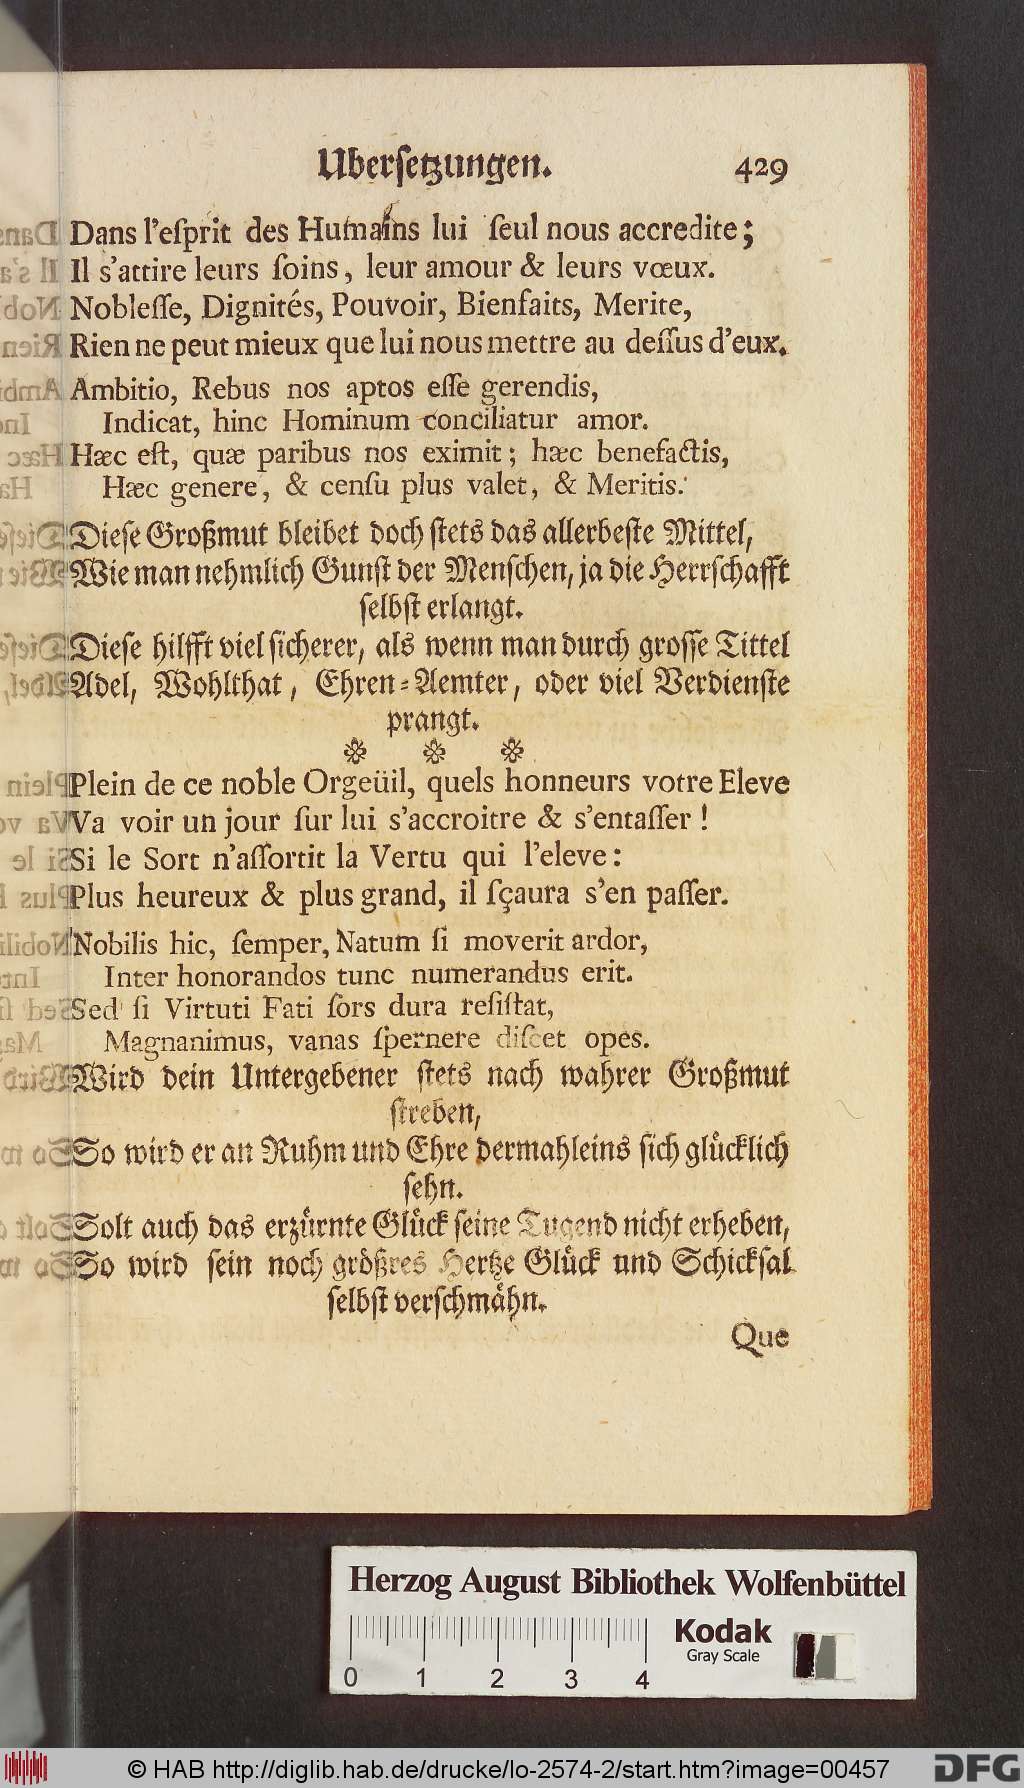 Ubersetzungen. 429
Dans l'eſprit des Humains lui ſeul nous accredite;
Il s'attire leurs ſoins, leur amour & leurs vœux.
Nobleſſe, Dignités, Pouvoir, Bienfaits, Merite,
Rien ne peut mieux que lui nous mettre au deſſus d'eux.
Ambitio, Rebus nos aptos eſſe gerendis,
Indicat, hinc Hominum conciliatur amor.
Hæc eſt, quæ paribus nos eximit; hæc benefactis,
Hæc genere, & cenſu plus valet, & Meritis.
Dieſe Großmut bleibet doch ſtets das allerbeſte Mittel,
Wie man nehmlich Gunſt der Menſchen, ja die Herrſchafft
ſelbſt erlangt.
Dieſe hilfft viel ſicherer, als wenn man durch groſſe Tittel
Adel, Wohlthat, Ehren-Aemter, oder viel Verdienſte
prangt.
Plein de ce noble Orgeüil, quels honneurs votre Eleve
Va voir un jour ſur lui s'accroitre & s'entaſſer!
Si le Sort n'aſſortit la Vertu qui l'eleve:
Plus heureux & plus grand, il ſçaura s'en paſſer.
Nobilis hic, ſemper, Natum ſi moverit ardor,
Inter honorandos tunc numerandus erit.
Sed ſi Virtuti Fati ſors dura reſiſtat,
Magnanimus, vanas ſpernere diſcet opes.
Wird dein Untergebener ſtets nach wahrer Großmut
ſtreben,
So wird er an Ruhm und Ehre dermahleins ſich glücklich
ſehn.
Solt auch das erzürnte Glück ſeine Tugend nicht erheben,
So wird ſein noch größres Hertze Glück und Schickſal
ſelbſt verſchmähn.
Que
Herzog August Bibliothek Wolfenbüttel
Kodak
Gray Scale
0 1 2 3 4
© HAB http://diglib.hab.de/drucke/lo-2574-2/start.htm?image=00457
DFG